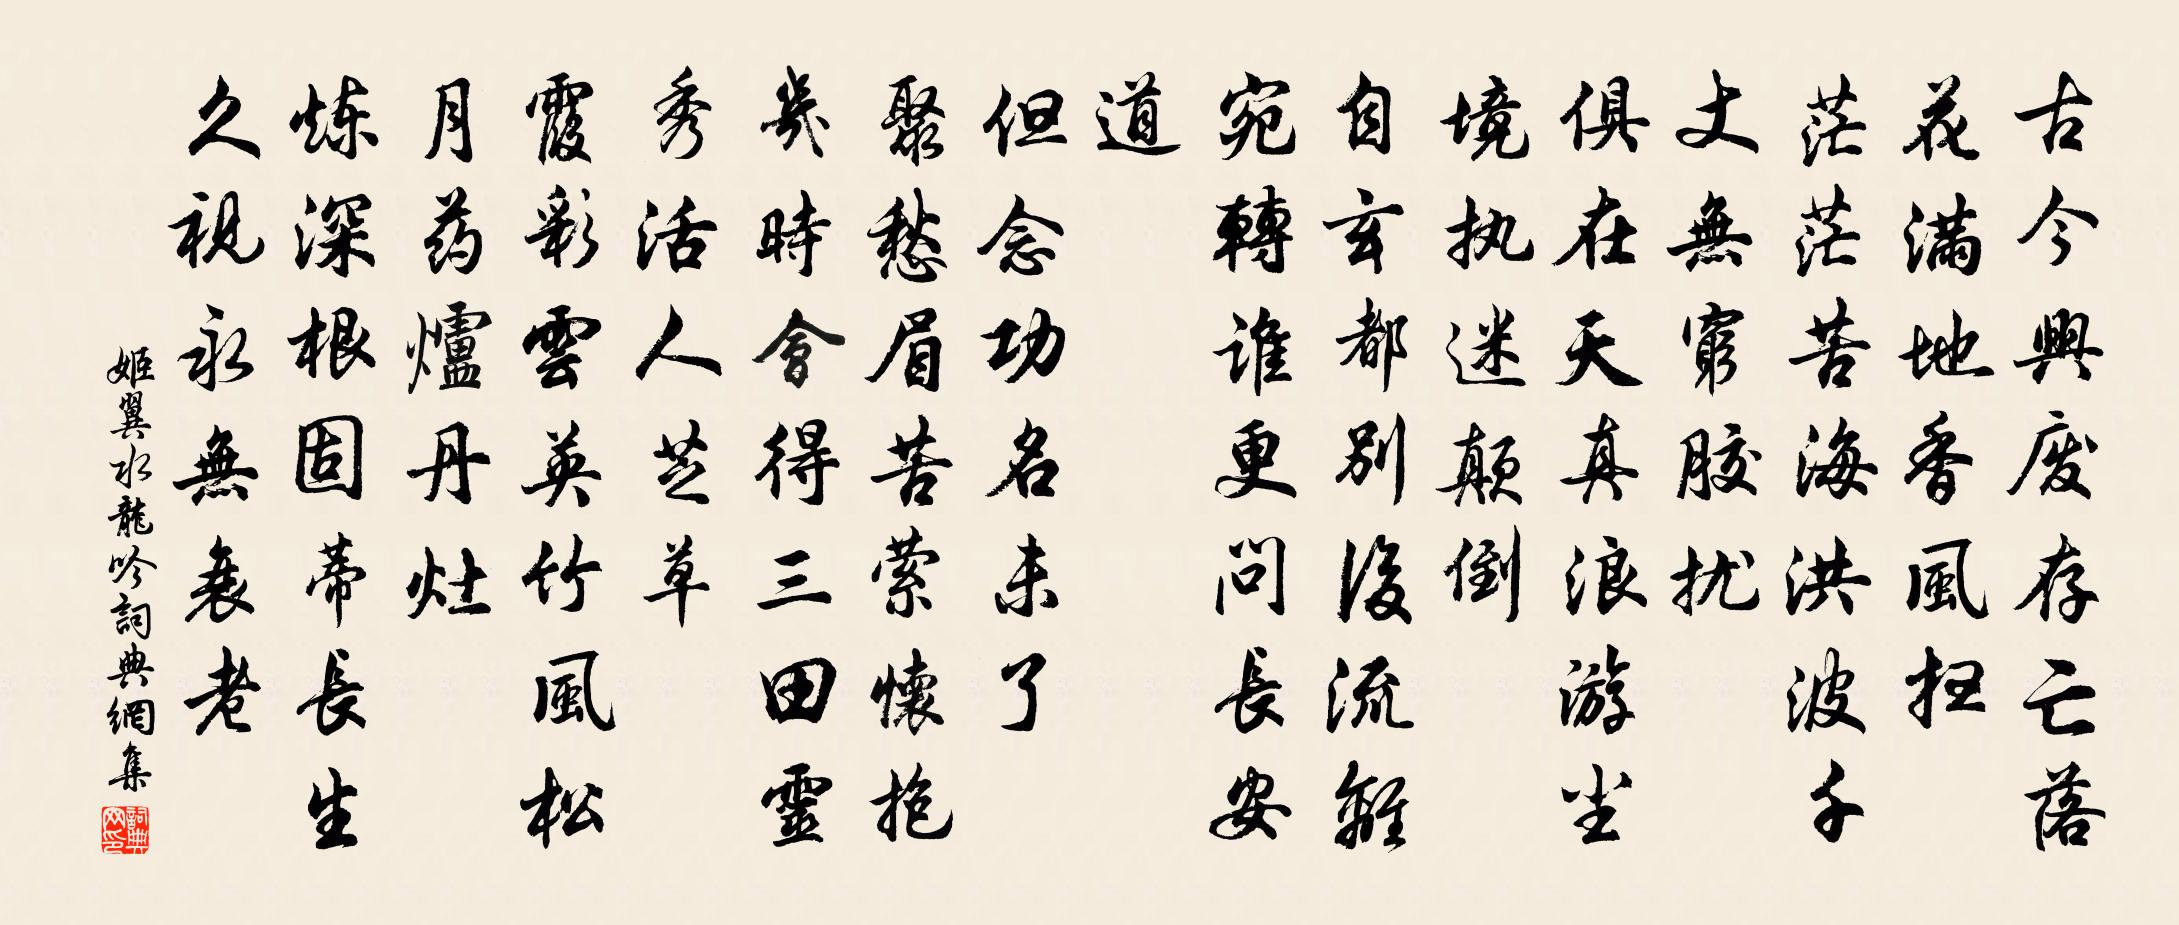 古今興废存亡落
花满地香風扫
茫茫苦海洪波千
丈無窮胶扰
俱在天真浪游尘
境执迷颠倒
自玄都别後流離
宛轉谁更问長安
道
但念功名未了
聚愁眉苦萦懷抱
幾時會得三田靈
秀活人芝草
霞彩雲英竹風松
月药爐丹灶
炼深根固蒂長生
久視永無衰老
姬翼水龍吟詞典網集
詞典网印